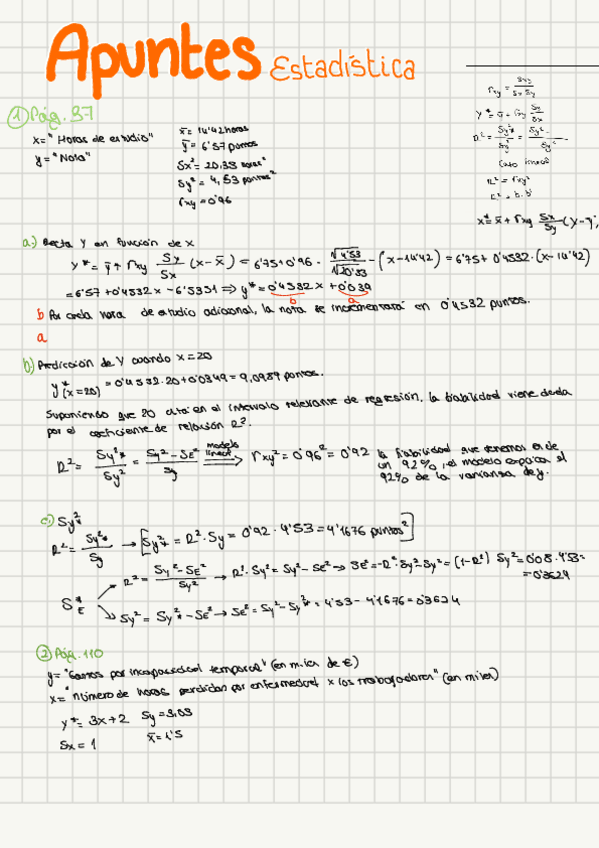 Apuntes Estadística
rxy = Sxy / Sx Sy
y* = ȳ + rxy Sy/Sx
R² = Sy²* / Sy² = Sy² - / Sy²
Caso lineal
R² = rxy²
R² = b.b'
x* = x̄ + rxy Sx/Sy (y-ȳ)
① Pág. 37
x = "Horas de estudio"
y = "Nota"
x̄ = 14'42 horas
ȳ = 6'57 puntos
Sx² = 20,33 horas²
Sy² = 4,53 puntos²
rxy = 0'96
a.) Recta Y en función de x
y* = ȳ + rxy Sy/Sx (x - x̄) = 6'75 + 0'96 · √4'53/√20'33 - (x - 14'42) = 6'75 + 0'4532 · (x - 14'42)
= 6'57 + 0'4532x - 6'5351 ⇒ y* = 0'4532x + 0'039
b a
b Por cada hora de estudio adicional, la nota se incrementará en 0'4532 puntos.
a
b) Predicción de Y cuando x = 20
y*(x=20) = 0'4532 · 20 + 0'0349 = 9,0989 puntos.
Suponiendo que 20 está en el intervalo relevante de regresión, la fiabilidad viene dada
por el coeficiente de relación R².
R² = Sy²* / Sy² = Sy² - Se² / Sy modelo lineal ⟹ rxy² = 0'96² = 0'92 la fiabilidad que tenemos es de
un 92%, el modelo explica el
92% de la varianza de y.
c) Sy²*
R² = Sy²* / Sy → [Sy²* = R² · Sy = 0'92 · 4'53 = 4'1676 puntos²]
S*E
R² = Sy² - Se² / Sy² → R² · Sy² = Sy² - Se² → Se² = -R² · Sy² - Sy² = (1-R²) Sy² = 0'08 · 4'53 =
= 0'3624
Sy² = Sy²* - Se² → Se² = Sy² - Sy²* = 4'53 - 4'1676 = 0'3624
② Pág. 110
y = "Gastos por incapacidad temporal" (en miles de €)
x = "número de horas perdidas por enfermedad x los trabajadores" (en miles)
y* = 3x + 2 Sy = 3,03
Sx = 1 x̄ = 1'5